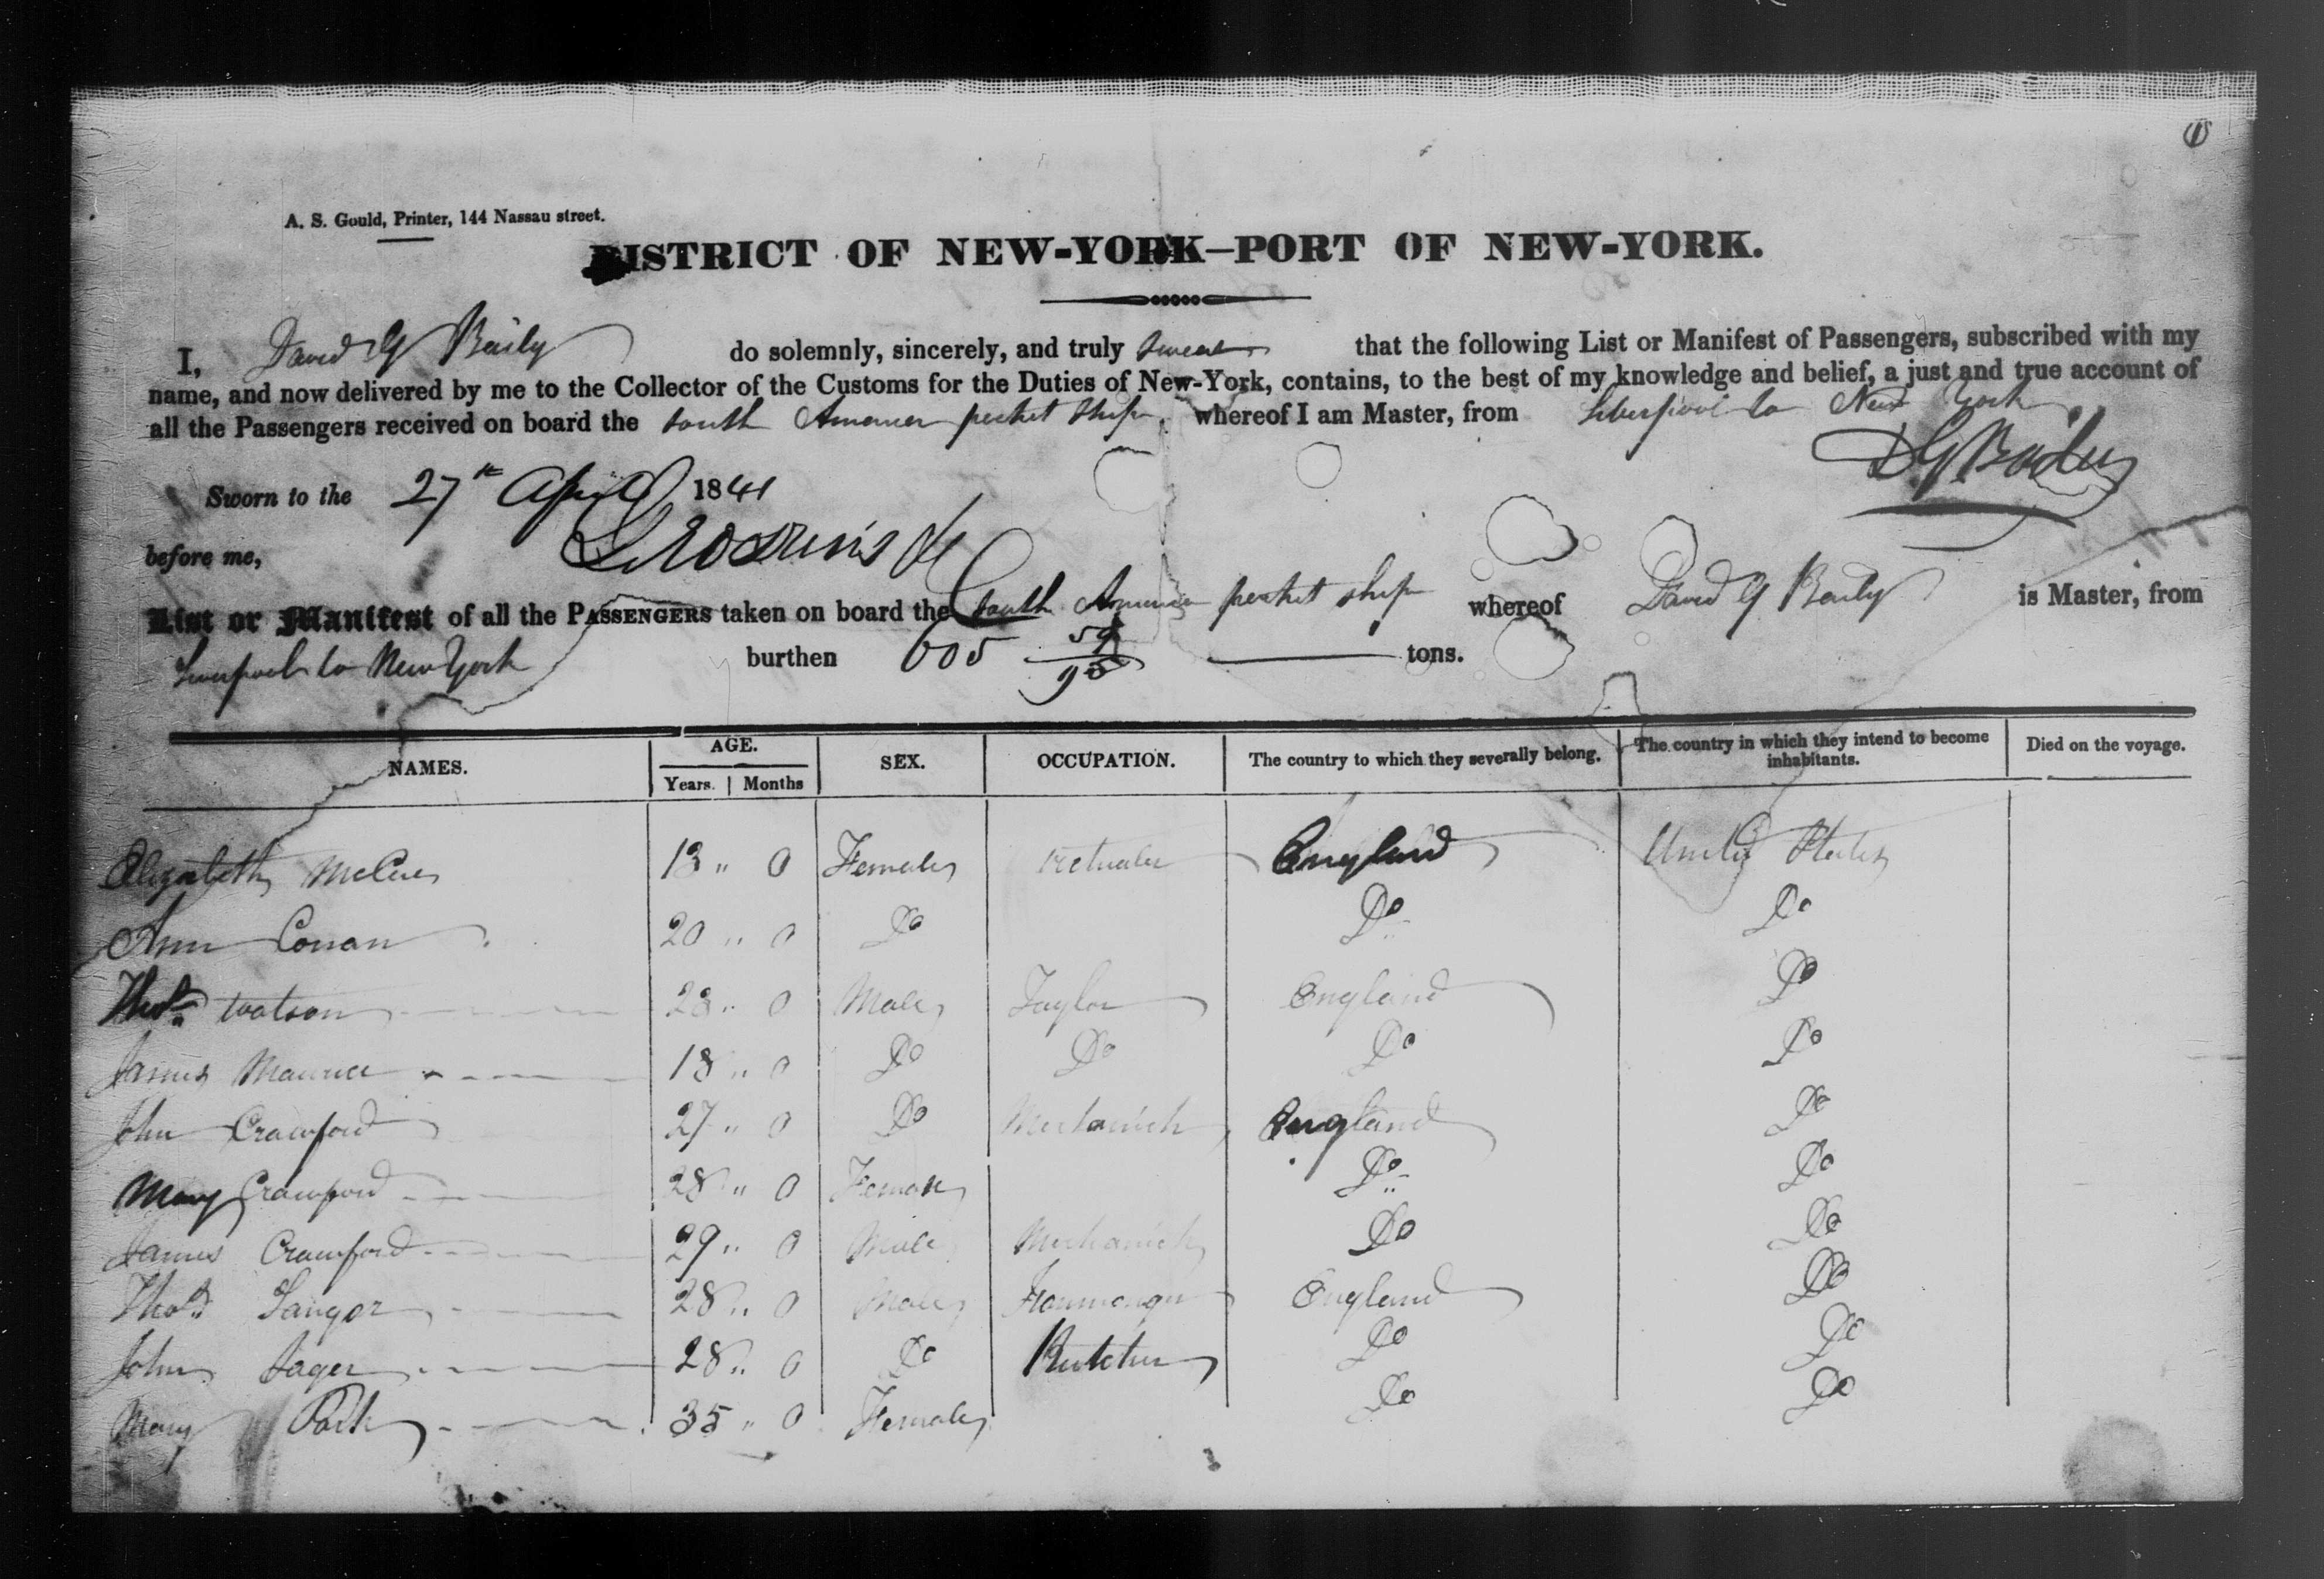 A. S. Gould, Printer, 144 Nassau street.
DISTRICT OF NEW-YORK—PORT OF NEW-YORK.
I, David G Baily do solemnly, sincerely, and truly swear that the following List or Manifest of Passengers, subscribed with my
name, and now delivered by me to the Collector of the Customs for the Duties of New-York, contains, to the best of my knowledge and belief, a just and true account of
all the Passengers received on board the South America packet ship whereof I am Master, from Liverpool to New York
D G Bailey
Sworn to the 27th April 1841
before me,
List or Manifest of all the PASSENGERS taken on board the South America packet ship whereof David G Baily is Master, from
Liverpool to New York burthen 605 59/95 tons.
NAMES. AGE. SEX. OCCUPATION. The country to which they severally belong. The country in which they intend to become inhabitants. Died on the voyage.
Years. Months
Elizabeth 13 " 0 Female England United States
Ann Conan 20 " 0 Do Do Do
Thos Watson 28 " 0 Male Taylor England Do
James Maurice 18 " 0 Do Do Do Do
John Crawford 27 " 0 Do Mechanick England Do
Mary Crawford 28 " 0 Female Do Do
James Crawford 29 " 0 Male Mechanick Do Do
Thos Sanger 28 " 0 Male England Do
John Sager 28 " 0 Do Butcher Do Do
Mary Park 35 " 0 Female Do Do